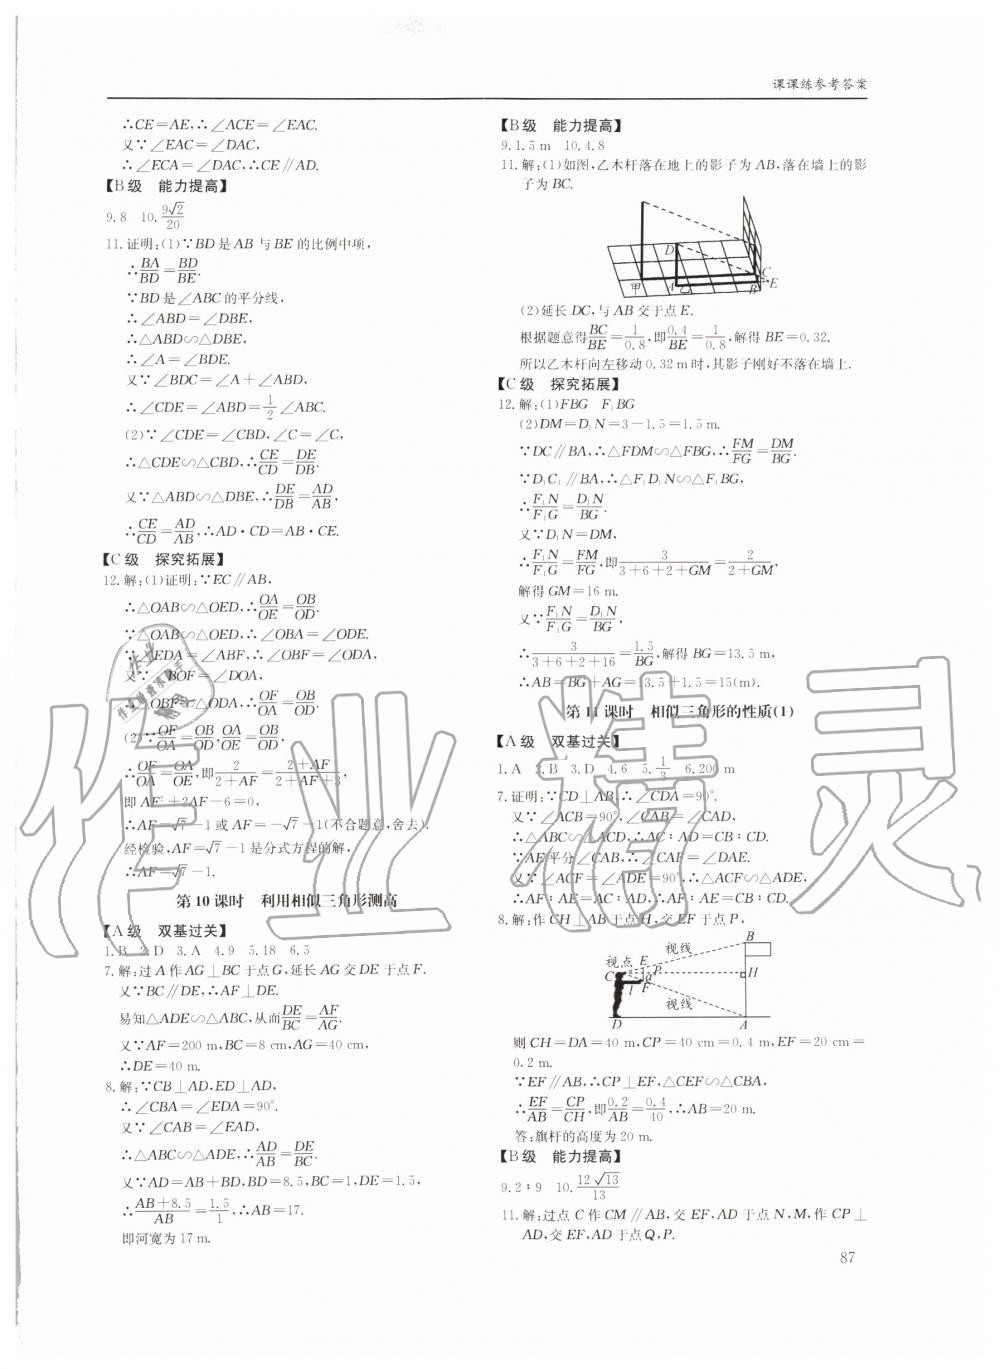 课课练参考答案
∴CE=AE,∴∠ACE=∠EAC.
又∵∠EAC=∠DAC,
∴∠ECA=∠DAC,∴CE∥AD.
【B级 能力提高】
9.8 10.9√2/20
11.证明:(1)∵BD是AB与BE的比例中项,
∴BA/BD=BD/BE.
∵BD是∠ABC的平分线,
∴∠ABD=∠DBE,
∴△ABD∽△DBE,
∴∠A=∠BDE.
又∵∠BDC=∠A+∠ABD,
∴∠CDE=∠ABD=1/2∠ABC.
(2)∵∠CDE=∠CBD,∠C=∠C,
∴△CDE∽△CBD,∴CE/CD=DE/DB.
又∵△ABD∽△DBE,∴DE/DB=AD/AB,
∴CE/CD=AD/AB,∴AD·CD=AB·CE.
【C级 探究拓展】
12.解:(1)证明:∵EC∥AB,
∴△OAB∽△OED,∴OA/OE=OB/OD.
∵△OAB∽△OED,∴∠OBA=∠ODE.
∵∠EDA=∠ABF,∴∠OBF=∠ODA.
又∵∠BOF=∠DOA,
∴△OBF∽△ODA,∴OF/OA=OB/OD.
(2)∵OF/OA=OB/OD,OA/OE=OB/OD,
∴OF/OA=OA/OE,即2/(2+AF)=(2+AF)/(2+AF+3),
即AF²+2AF-6=0,
∴AF=√7-1或AF=-√7-1(不合题意,舍去).
经检验,AF=√7-1是分式方程的解,
∴AF=√7-1.
第10课时 利用相似三角形测高
【A级 双基过关】
1.B 2.D 3.A 4.9 5.18 6.5
7.解:过A作AG⊥BC于点G,延长AG交DE于点F.
又∵BC∥DE,∴AF⊥DE.
易知△ADE∽△ABC,从而DE/BC=AF/AG.
又∵AF=200 m,BC=8 cm,AG=40 cm,
∴DE=40 m.
8.解:∵CB⊥AD,ED⊥AD,
∴∠CBA=∠EDA=90°.
又∵∠CAB=∠EAD,
∴△ABC∽△ADE,∴AD/AB=DE/BC.
又∵AD=AB+BD,BD=8.5,BC=1,DE=1.5,
∴(AB+8.5)/AB=1.5/1,∴AB=17.
即河宽为17 m.
【B级 能力提高】
9.1.5 m 10.4.8
11.解:(1)如图,乙木杆落在地上的影子为AB,落在墙上的影
子为BC.
D
C
E
甲 A 乙 B
(2)延长DC,与AB交于点E.
根据题意得BC/BE=1/0.8,即0.4/BE=1/0.8,解得BE=0.32.
所以乙木杆向左移动0.32 m时,其影子刚好不落在墙上.
【C级 探究拓展】
12.解:(1)FBG F₁BG
(2)DM=D₁N=3-1.5=1.5 m.
∵DC∥BA,∴△FDM∽△FBG,∴FM/FG=DM/BG.
∵D₁C₁∥BA,∴△F₁D₁N∽△F₁BG,
∴F₁N/F₁G=D₁N/BG.
又∵D₁N=DM,
∴F₁N/F₁G=FM/FG,即3/(3+6+2+GM)=2/(2+GM),
解得GM=16 m.
又∵F₁N/F₁G=D₁N/BG,
∴3/(3+6+2+16)=1.5/BG,解得BG=13.5 m,
∴AB=BG+AG=13.5+1.5=15(m).
第11课时 相似三角形的性质(1)
【A级 双基过关】
1.A 2.B 3.D 4.6 5.1/3 6.200 m
7.证明:∵CD⊥AB,∴∠CDA=90°.
又∵∠ACB=90°,∠CAB=∠CAD,
∴△ABC∽△ACD,∴AC∶AD=CB∶CD.
∵AE平分∠CAB,∴∠CAF=∠DAE.
又∵∠ACF=∠ADE=90°,∴△ACF∽△ADE,
∴AF∶AE=AC∶AD,∴AF∶AE=CB∶CD.
8.解:作CH⊥AB于点H,交EF于点P,
视线 B
视点 E
C P H
l F
视线
D A
则CH=DA=40 m,CP=40 cm=0.4 m,EF=20 cm=
0.2 m.
∵EF∥AB,∴CP⊥EF,△CEF∽△CBA,
∴EF/AB=CP/CH,即0.2/AB=0.4/40,∴AB=20 m.
答:旗杆的高度为20 m.
【B级 能力提高】
9.2∶9 10.12√13/13
11.解:过点C作CM∥AB,交EF,AD于点N,M,作CP⊥
AD,交EF,AD于点Q,P.
87
作业精灵